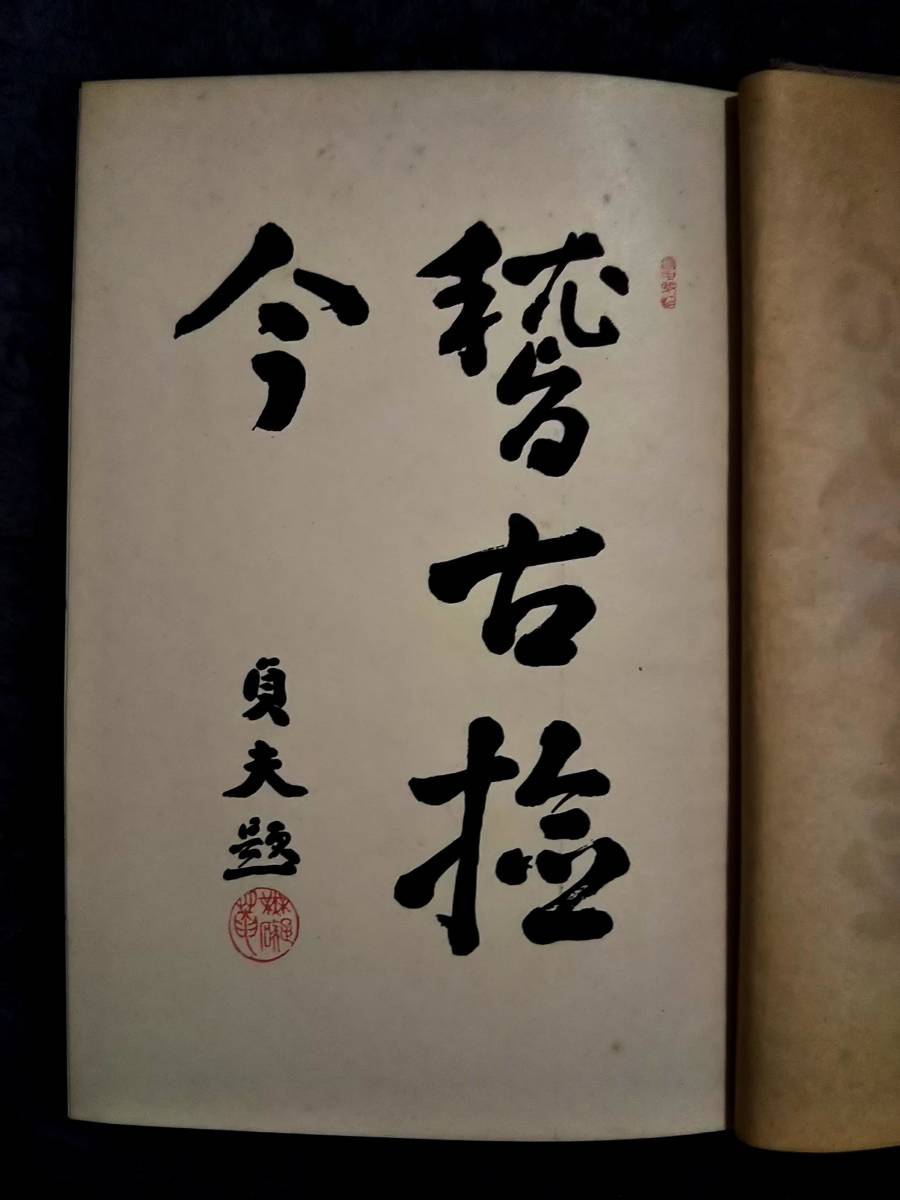 稽古撿
今
貞夫題